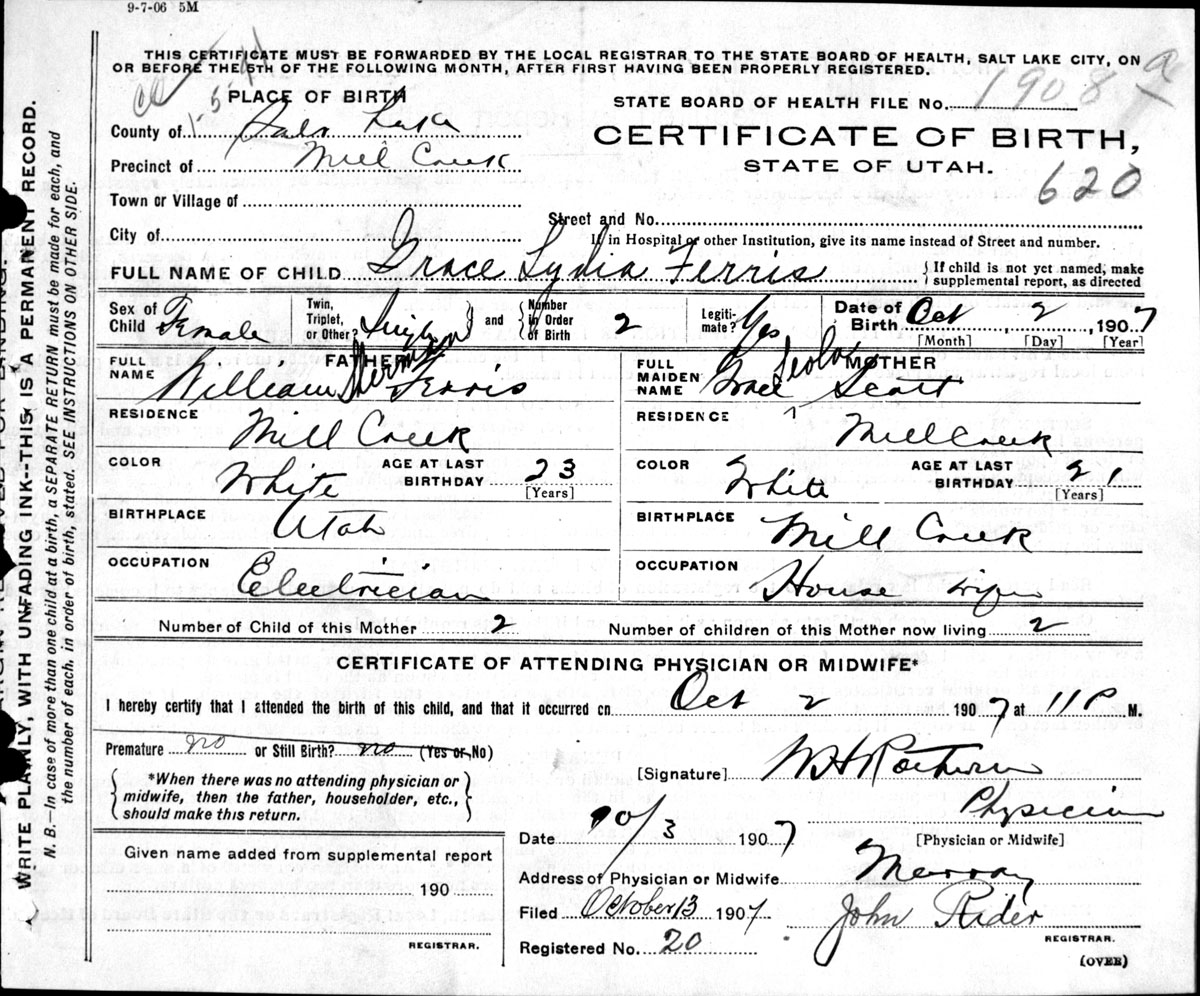 9-7-06 5M
THIS CERTIFICATE MUST BE FORWARDED BY THE LOCAL REGISTRAR TO THE STATE BOARD OF HEALTH, SALT LAKE CITY, ON
OR BEFORE THE 5TH OF THE FOLLOWING MONTH, AFTER FIRST HAVING BEEN PROPERLY REGISTERED.
PLACE OF BIRTH
STATE BOARD OF HEALTH FILE No. 1908
County of Salt Lake
CERTIFICATE OF BIRTH,
Precinct of Mill Creek
STATE OF UTAH.
620
Town or Village of
Street and No.
City of
If in Hospital or other Institution, give its name instead of Street and number.
FULL NAME OF CHILD Grace Lydia Ferris { If child is not yet named, make
supplemental report, as directed
Sex of Child Female Twin, Triplet, or Other? Single } and { Number in Order of Birth 2 Legiti-mate? Yes Date of Birth Oct, 2, 1907
[Month] [Day] [Year]
FATHER
FULL NAME William Sherman Ferris
MOTHER
FULL MAIDEN NAME Grace Scott
RESIDENCE Mill Creek
RESIDENCE Mill Creek
COLOR White AGE AT LAST BIRTHDAY 23 [Years]
COLOR White AGE AT LAST BIRTHDAY 21 [Years]
BIRTHPLACE Utah
BIRTHPLACE Mill Creek
OCCUPATION Electrician
OCCUPATION House wife
Number of Child of this Mother 2 Number of children of this Mother now living 2
CERTIFICATE OF ATTENDING PHYSICIAN OR MIDWIFE*
I hereby certify that I attended the birth of this child, and that it occurred on Oct 2 1907 at 11 P M.
Premature no or Still Birth? no (Yes or No)
[Signature] W H
Physician
[Physician or Midwife]
{ *When there was no attending physician or
midwife, then the father, householder, etc.,
should make this return. }
Date 10/3 1907
Address of Physician or Midwife Murray
Filed October 13 1907 John Rider
REGISTRAR.
Registered No. 20
(OVER)
Given name added from supplemental report
190
REGISTRAR.
WRITE PLAINLY, WITH UNFADING INK--THIS IS A PERMANENT RECORD.
N. B.—In case of more than one child at a birth, a SEPARATE RETURN must be made for each, and
the number of each, in order of birth, stated. SEE INSTRUCTIONS ON OTHER SIDE.